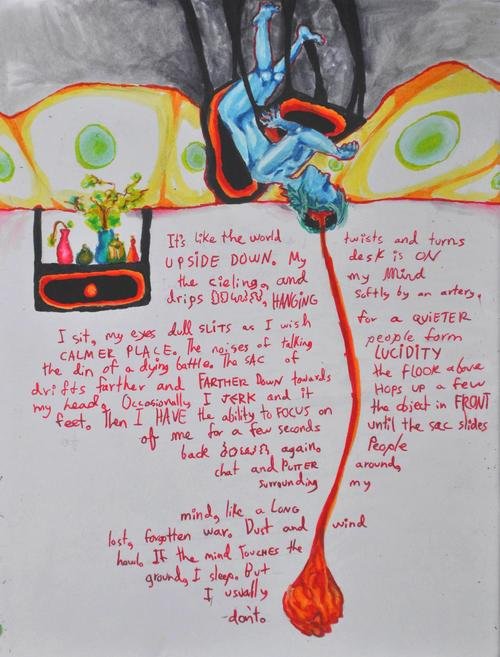 It's like the world twists and turns
UPSIDE DOWN. My desk is ON
the cieling, and my mind
drips DOWN, HANGING softly by an artery,
I sit, my eyes dull SLITS as I wish for a QUIETER
CALMER PLACE. The noises of talking people form
the din of a dying battle. The SAC of LUCIDITY
drifts farther and FARTHER DOWN towards the FLOOR above
my head. Occasionally I JERK and it HOPS up a few
feet. Then I HAVE the ability to FOCUS on the object in FRONT
of me for a few seconds until the sac slides
back down again. People
chat and PUTTER around,
surrounding my
mind, like a LONG
lost, forgotten war. Dust and wind
howl. If the mind TOUCHES the
ground, I sleep. But
I usually
-don't.